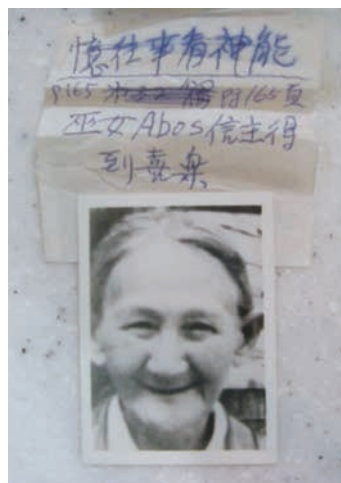 憶往事有神能
P165 附165頁
巫女Abos信主得
到喜樂